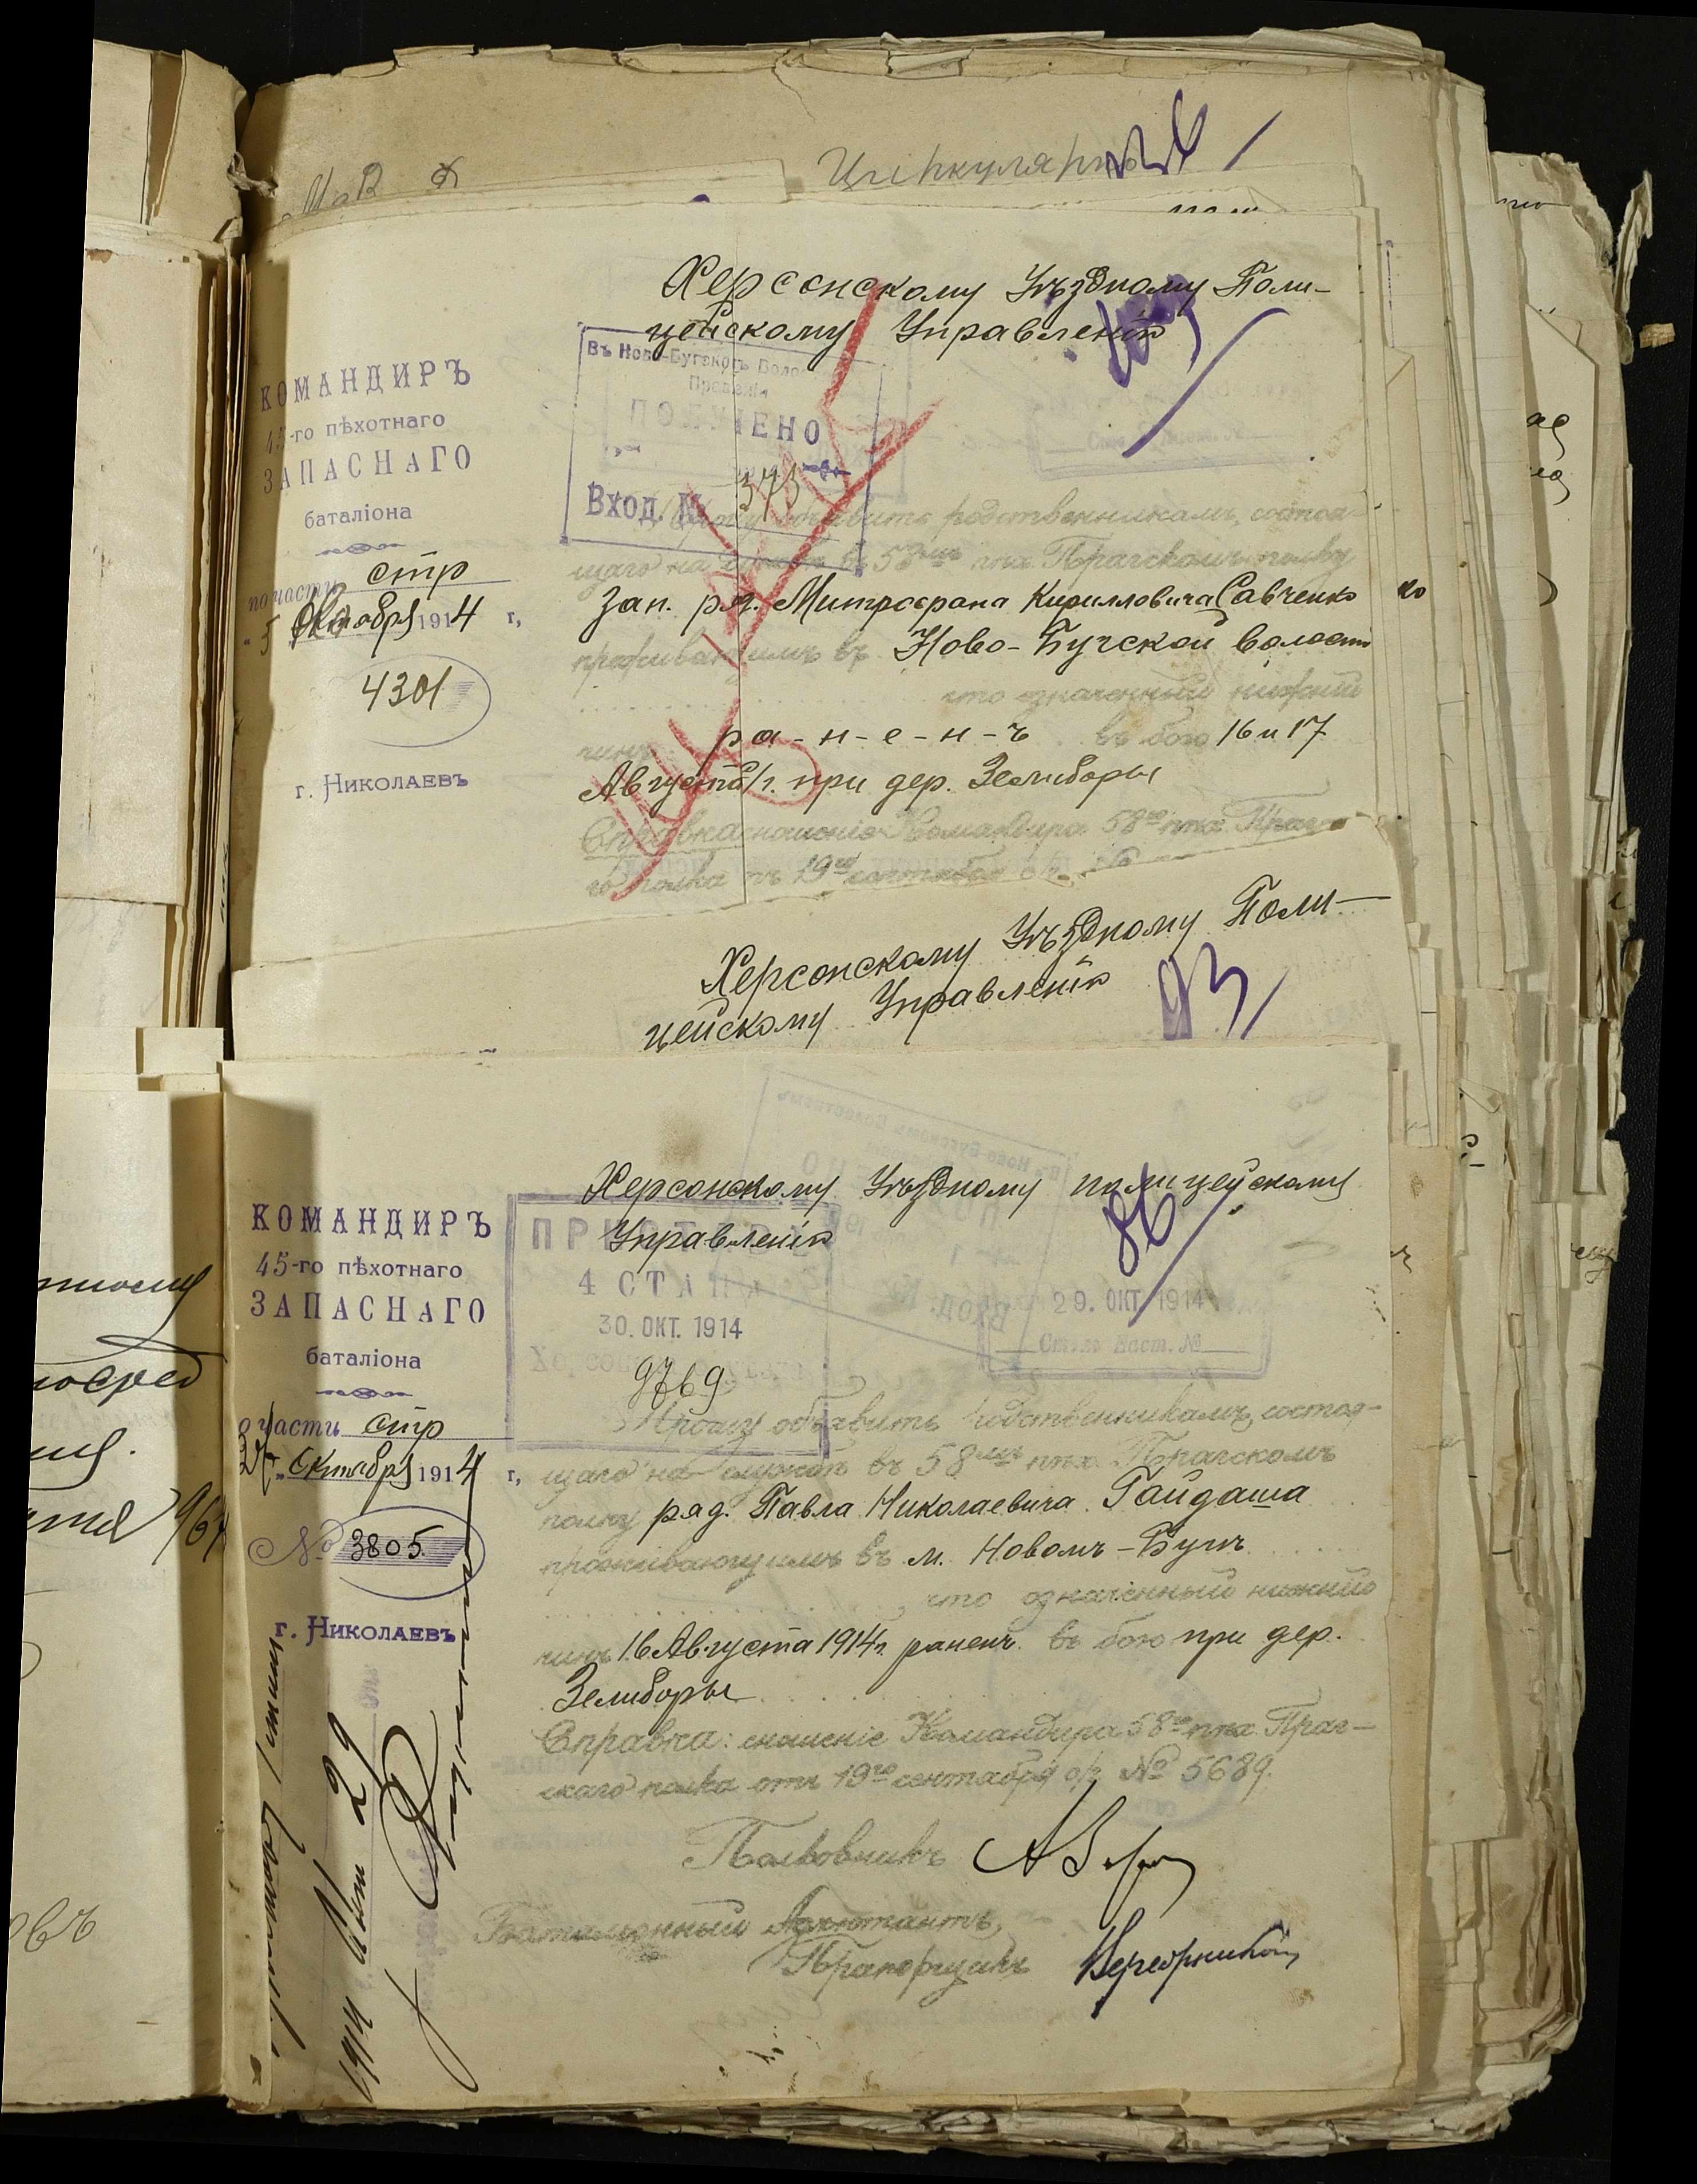 Циркуляры
Херсонскому Уѣздному Поли-
цейскому Управленію
Въ Ново-Бугском Воло
Правленіи
ПОЛУЧЕНО
373
Вход. №
КОМАНДИРЪ
45-го пѣхотнаго
ЗАПАСНАГО
баталіона
по части стр
5 Октября 1914 г.
4301
г. Николаевъ
Прошу объявить родственникамъ, состоя-
щаго на службѣ въ 58мъ пѣх. Прагскомъ полку
Зап. ряд. Митрофана Кирилловича Савченко
проживающимъ въ Ново-Бугской волости
что означенный нижній
чинъ ра-н-е-н-ъ въ бою 16 и 17
Августа с/г. при дер. Зелиборы
Справка: сношеніе Командира 58го пѣх. Праг-
го полка отъ 19го сентября с/г. №
Херсонскому Уѣздному Поли-
цейскому Управленію
93
Херсонскому Уѣздному полицейскому
Управленію
86
4 СТАНА
30. ОКТ. 1914
9769
29. ОКТ. 1914
Столъ Наст. №
КОМАНДИРЪ
45-го пѣхотнаго
ЗАПАСНАГО
баталіона
о части стр
Октября 1914 г,
№ 3805
г. Николаевъ
Прошу объявить родственникамъ, состоя-
щаго на службѣ въ 58мъ пѣх. Прагскомъ
полку ряд. Павла Николаевича Гайдаша
проживающимъ въ м. Новомъ-Бугѣ
что означенный нижній
чинъ 16 Августа 1914 г. раненъ въ бою при дер.
Зелиборы
Справка: сношеніе Командира 58го пѣх. Праг-
скаго полка отъ 19го сентября с/г. № 5689.
Полковникъ
Баталіонный Адъютантъ,
Прапорщикъ
1914 29